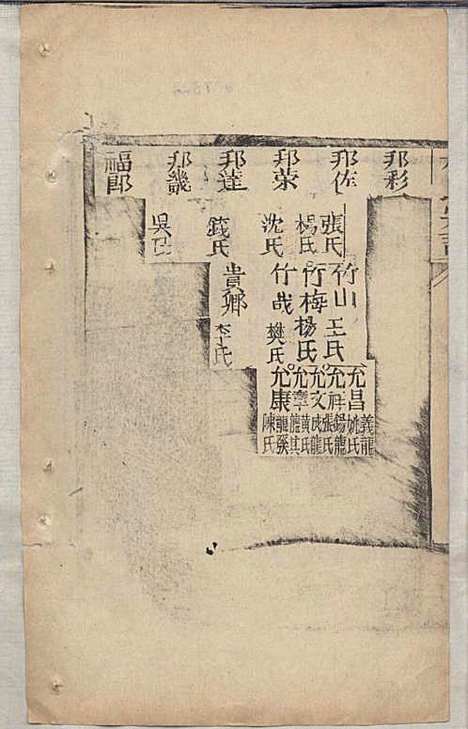 邦彩
邦佐
張氏
楊氏
邦荣
沈氏
邦達
錢氏
邦畿
吳氏
福郎
竹山
王氏
竹梅
楊氏
竹哉
樊氏
貴卿
李氏
允昌
義龍
姚氏
允祥
錫龍
張氏
允文
成龍
黃氏
允寧
其
允康
龍
陳氏